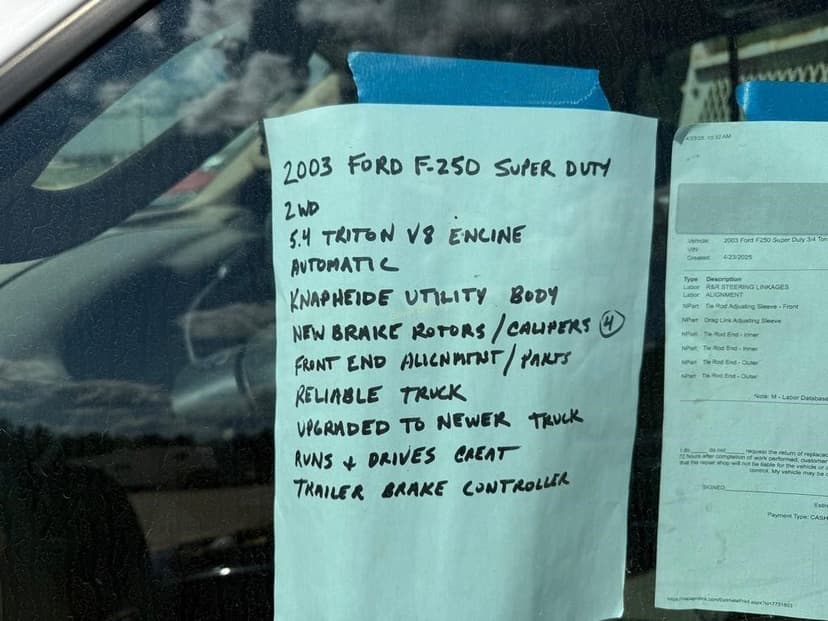 2003 FORD F-250 SUPER DUTY
2WD
5.4 TRITON V8 ENGINE
AUTOMATIC
KNAPHEIDE UTILITY BODY
NEW BRAKE ROTORS/CALIPERS 4
FRONT END ALIGNMENT/PARTS
RELIABLE TRUCK
UPGRADED TO NEWER TRUCK
RUNS + DRIVES GREAT
TRAILER BRAKE CONTROLLER
Vehicle: 2003 Ford F250 Super Duty 3/4 Ton
VIN:
Created: 4/23/2025
Type Description
Labor R&R STEERING LINKAGES
Labor ALIGNMENT
NPart Tie Rod Adjusting Sleeve - Front
NPart Drag Link Adjusting Sleeve
NPart Tie Rod End - Inner
NPart Tie Rod End - Inner
NPart Tie Rod End - Outer
NPart Tie Rod End - Outer
Note: M - Labor Database
I do____ do not____ request the return of replaced
72 hours after completion of work performed, customer
that the repair shop will not be liable for the vehicle or
control. My vehicle may be
SIGNED
Payment Type: CASH